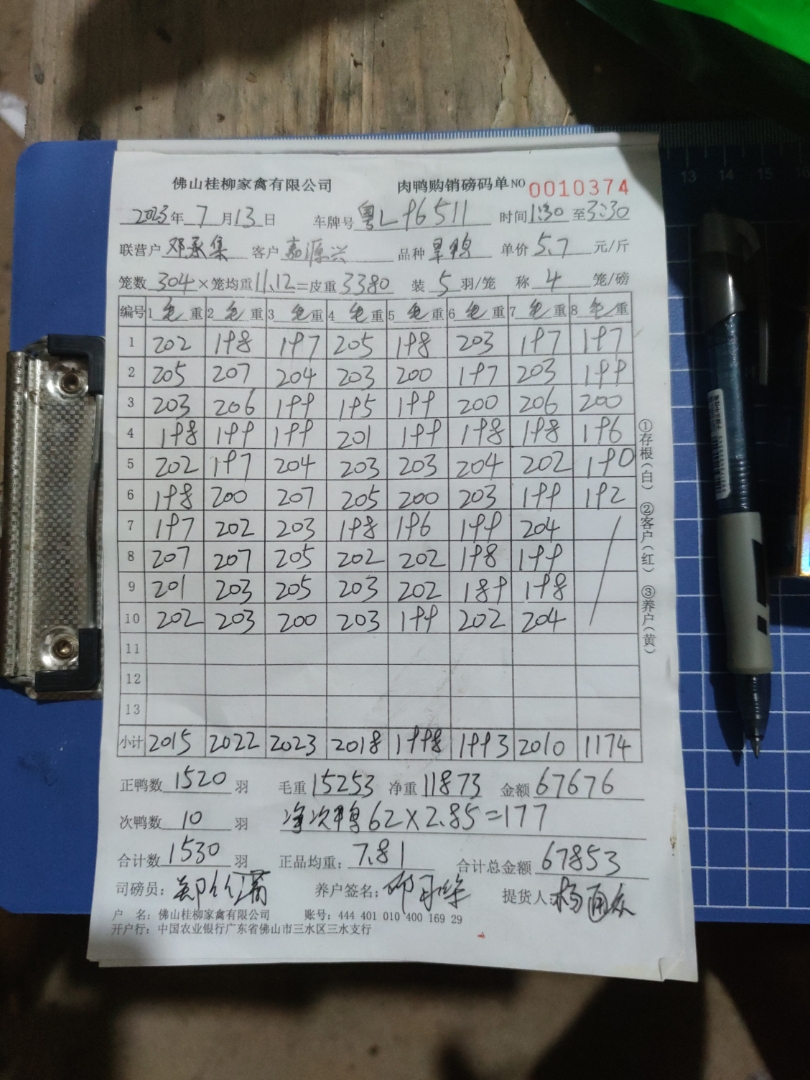 佛山桂柳家禽有限公司 肉鸭购销磅码单 NO 0010374
2023年 7 月 13 日 车牌号 粤L96511 时间 1:30 至 3:30
联营户 邓承集 客户 嘉源兴 品种 旱鸭 单价 5.7 元/斤
笼数 304 × 笼均重 11.12 = 皮重 3380 装 5 羽/笼 称 4 笼/磅
编号 1 毛重 2 毛重 3 毛重 4 毛重 5 毛重 6 毛重 7 毛重 8 毛重
1 202 198 197 205 198 203 197 197
2 205 207 204 203 200 197 203 199
3 203 206 199 195 199 200 206 200
4 198 199 199 201 199 198 198 196
5 202 197 204 203 203 204 202 190
6 198 200 207 205 200 203 199 192
7 197 202 203 198 196 199 204
8 207 207 205 202 202 198 199
9 201 203 205 203 202 189 198
10 202 203 200 203 199 202 204
11
12
13
小计 2015 2022 2023 2018 1998 1993 2010 1174
①存根(白) ②客户(红) ③养户(黄)
正鸭数 1520 羽 毛重 15253 净重 11873 金额 67676
次鸭数 10 羽 净次鸭 62×2.85=177
合计数 1530 羽 正品均重: 7.81 合计总金额 67853
司磅员: 养户签名: 提货人: 杨通众
户 名: 佛山桂柳家禽有限公司 账号: 444 401 010 400 169 29
开户行: 中国农业银行广东省佛山市三水区三水支行
13 14 15